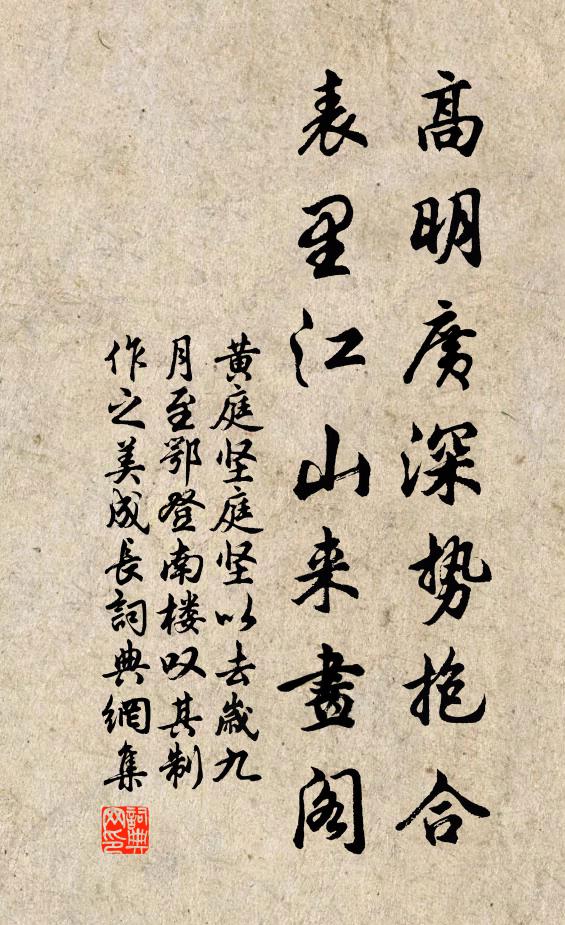 高明廣深勢抱合
表里江山来畫阁
黄庭坚庭坚以去歲九
月至鄂登南楼叹其制
作之美成長詞典網集
詞典
网印